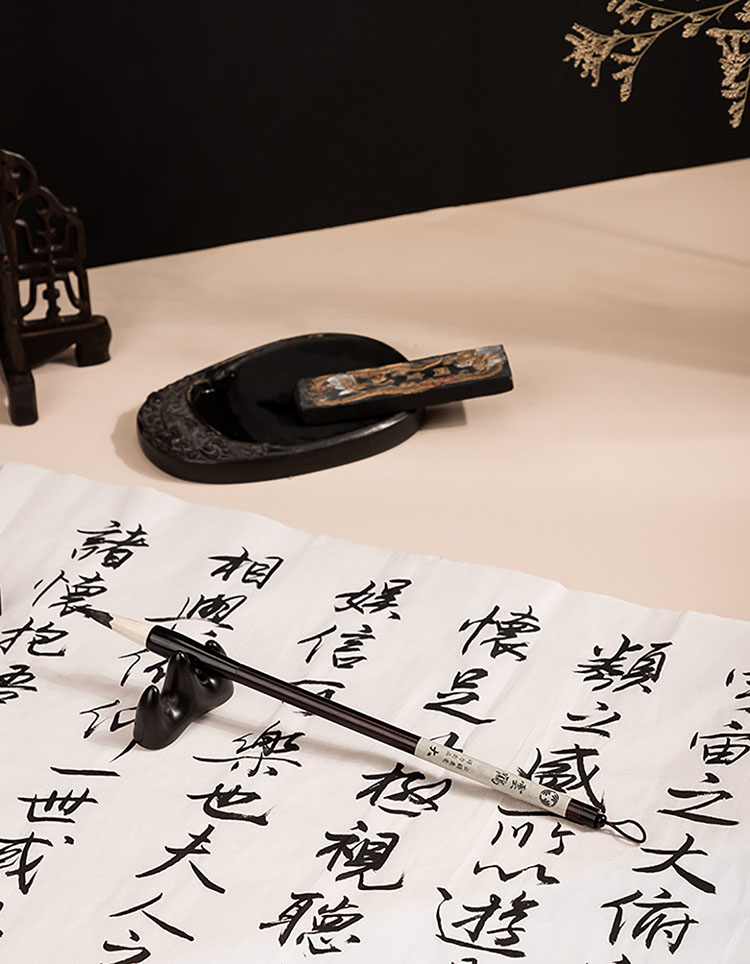 宇宙之大俯
類之盛所以遊
懷足以極視聽
娛信可樂也夫人之
相與俯仰一世或
諸懷抱
雲鶴
大